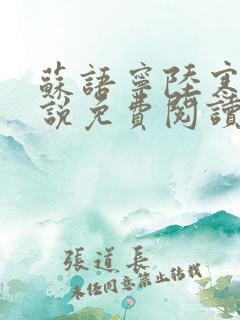 蘇語寧陸寒
說免費閱讀
張道長
未經同意禁止轉載